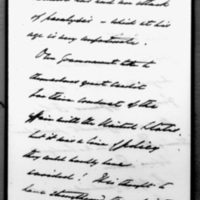 had an attack
of paralysis - which at his
age is very unfortunate.
Our Government take to
themselves great credit
for their conduct of the
affair with the United States.
but it was a line of policy
they could hardly have
avoided! It is thought to
have strengthened